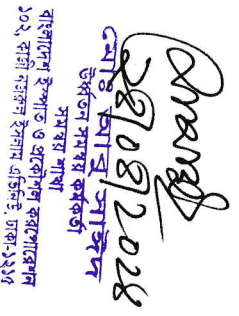 ২৪/০৪/২০২৪
মোঃ আবু সাঈদ
উর্ধ্বতন সমন্বয় কর্মকর্তা
সমন্বয় শাখা
বাংলাদেশ ইস্পাত ও প্রকৌশল করপোরেশন
১০২, কাজী নজরুল ইসলাম এভিনিউ, ঢাকা-১২১৫